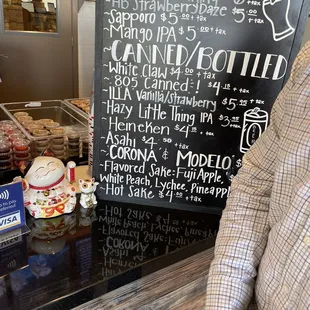 HB StrawberryDaze
~Sapporo $5.00 + tax
~Mango IPA $5.00 + tax
~CANNED/BOTTLED
~White Claw $4.00 + tax
~805 Canned: $4.18 + tax
~ILLA Vanilla/Strawberry $5.95 + tax
~Hazy Little Thing IPA $3.95 + tax
~Heineken $4 + tax
~Asahi $4.44 + tax
~CORONA & MODELO $
~Flavored Sake: Fuji Apple,
White Peach, Lychee, Pineapple
~Hot Sake $4.00 + tax
VISA